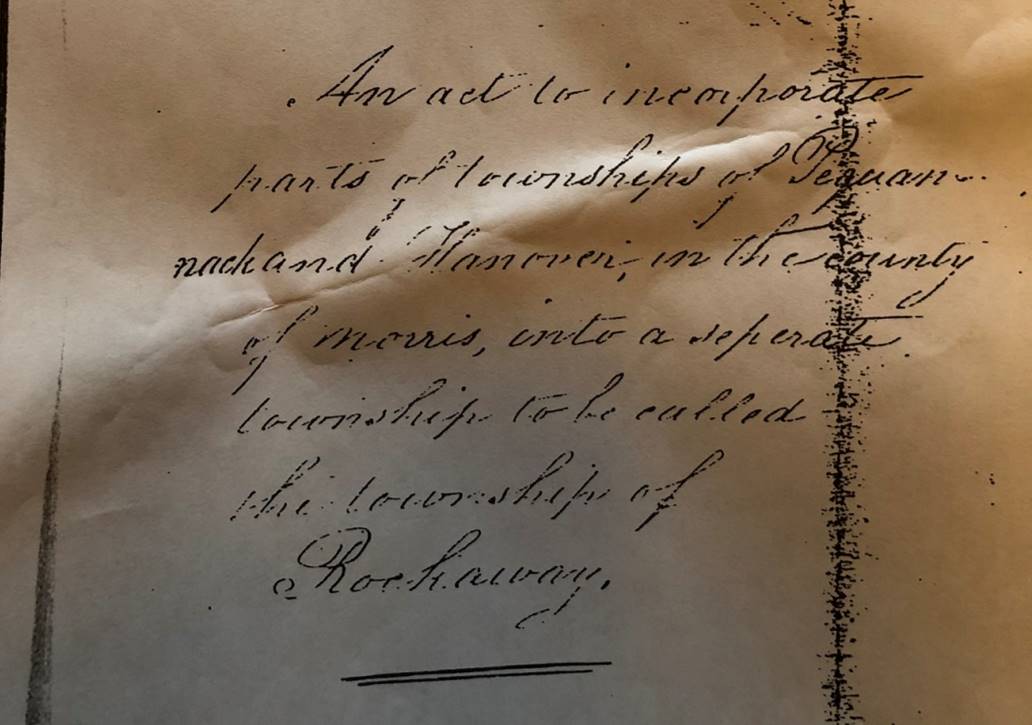 An act to incorporate
parts of townships of Pequan-
nack and Hanover, in the county
of morris, into a seperate
township to be called
the township of
Rockaway.